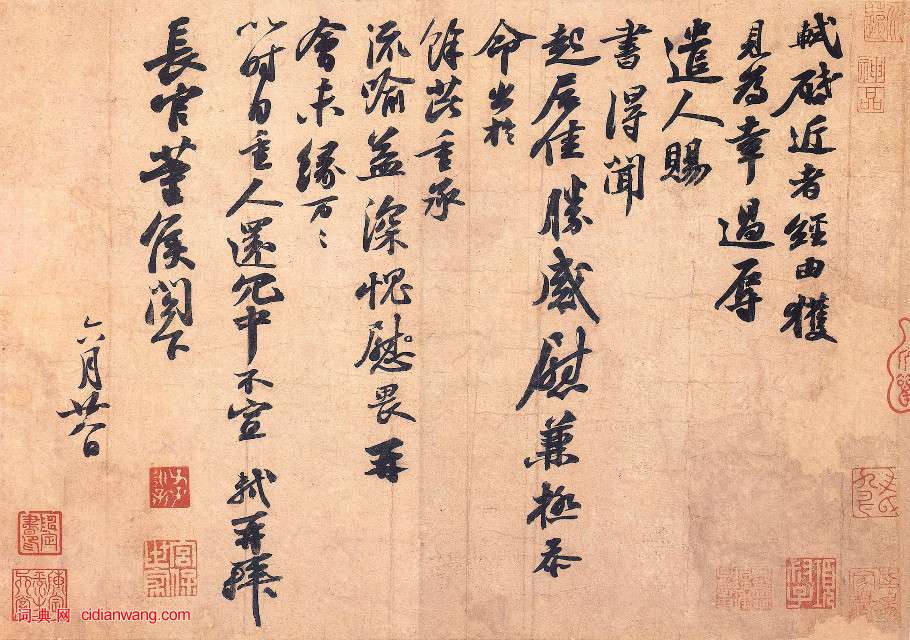 軾啓近者經由獲
見為幸過辱
遣人賜
書得聞
起居佳勝感慰兼極忝
命出於
餘芘重承
流喻益深愧慰畏再
會未緣万〻
以時自重人還冗中不宣 軾再拜
長官董侯閤下
六月廿八日
神品
宮保世家
词典网 cidianwang.com